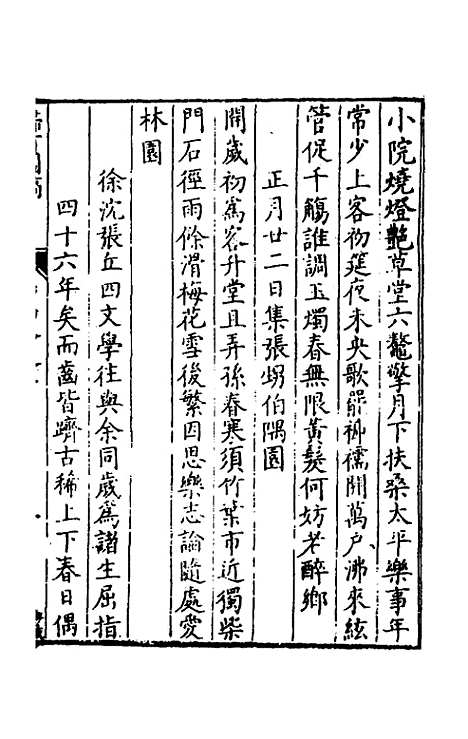 小院燒燈艷草堂六鼇擎月下扶桑太平樂事年
常少上客初筵夜未央歌罷袴襦開萬戶沸來絃
管促千觴誰調玉燭春無限黃髮何妨老醉鄉
正月廿二日集張甥伯隅園
開歲初為客升堂且弄孫春寒須竹葉市近獨柴
門石徑雨餘滑梅花雪後繁因思樂志論隨處愛
林園
徐沈張丘四文學往與余同歲為諸生屈指
四十六年矣而齒皆躋古稀上下春日偶